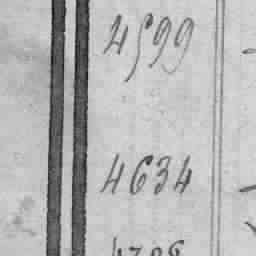 4599
4634